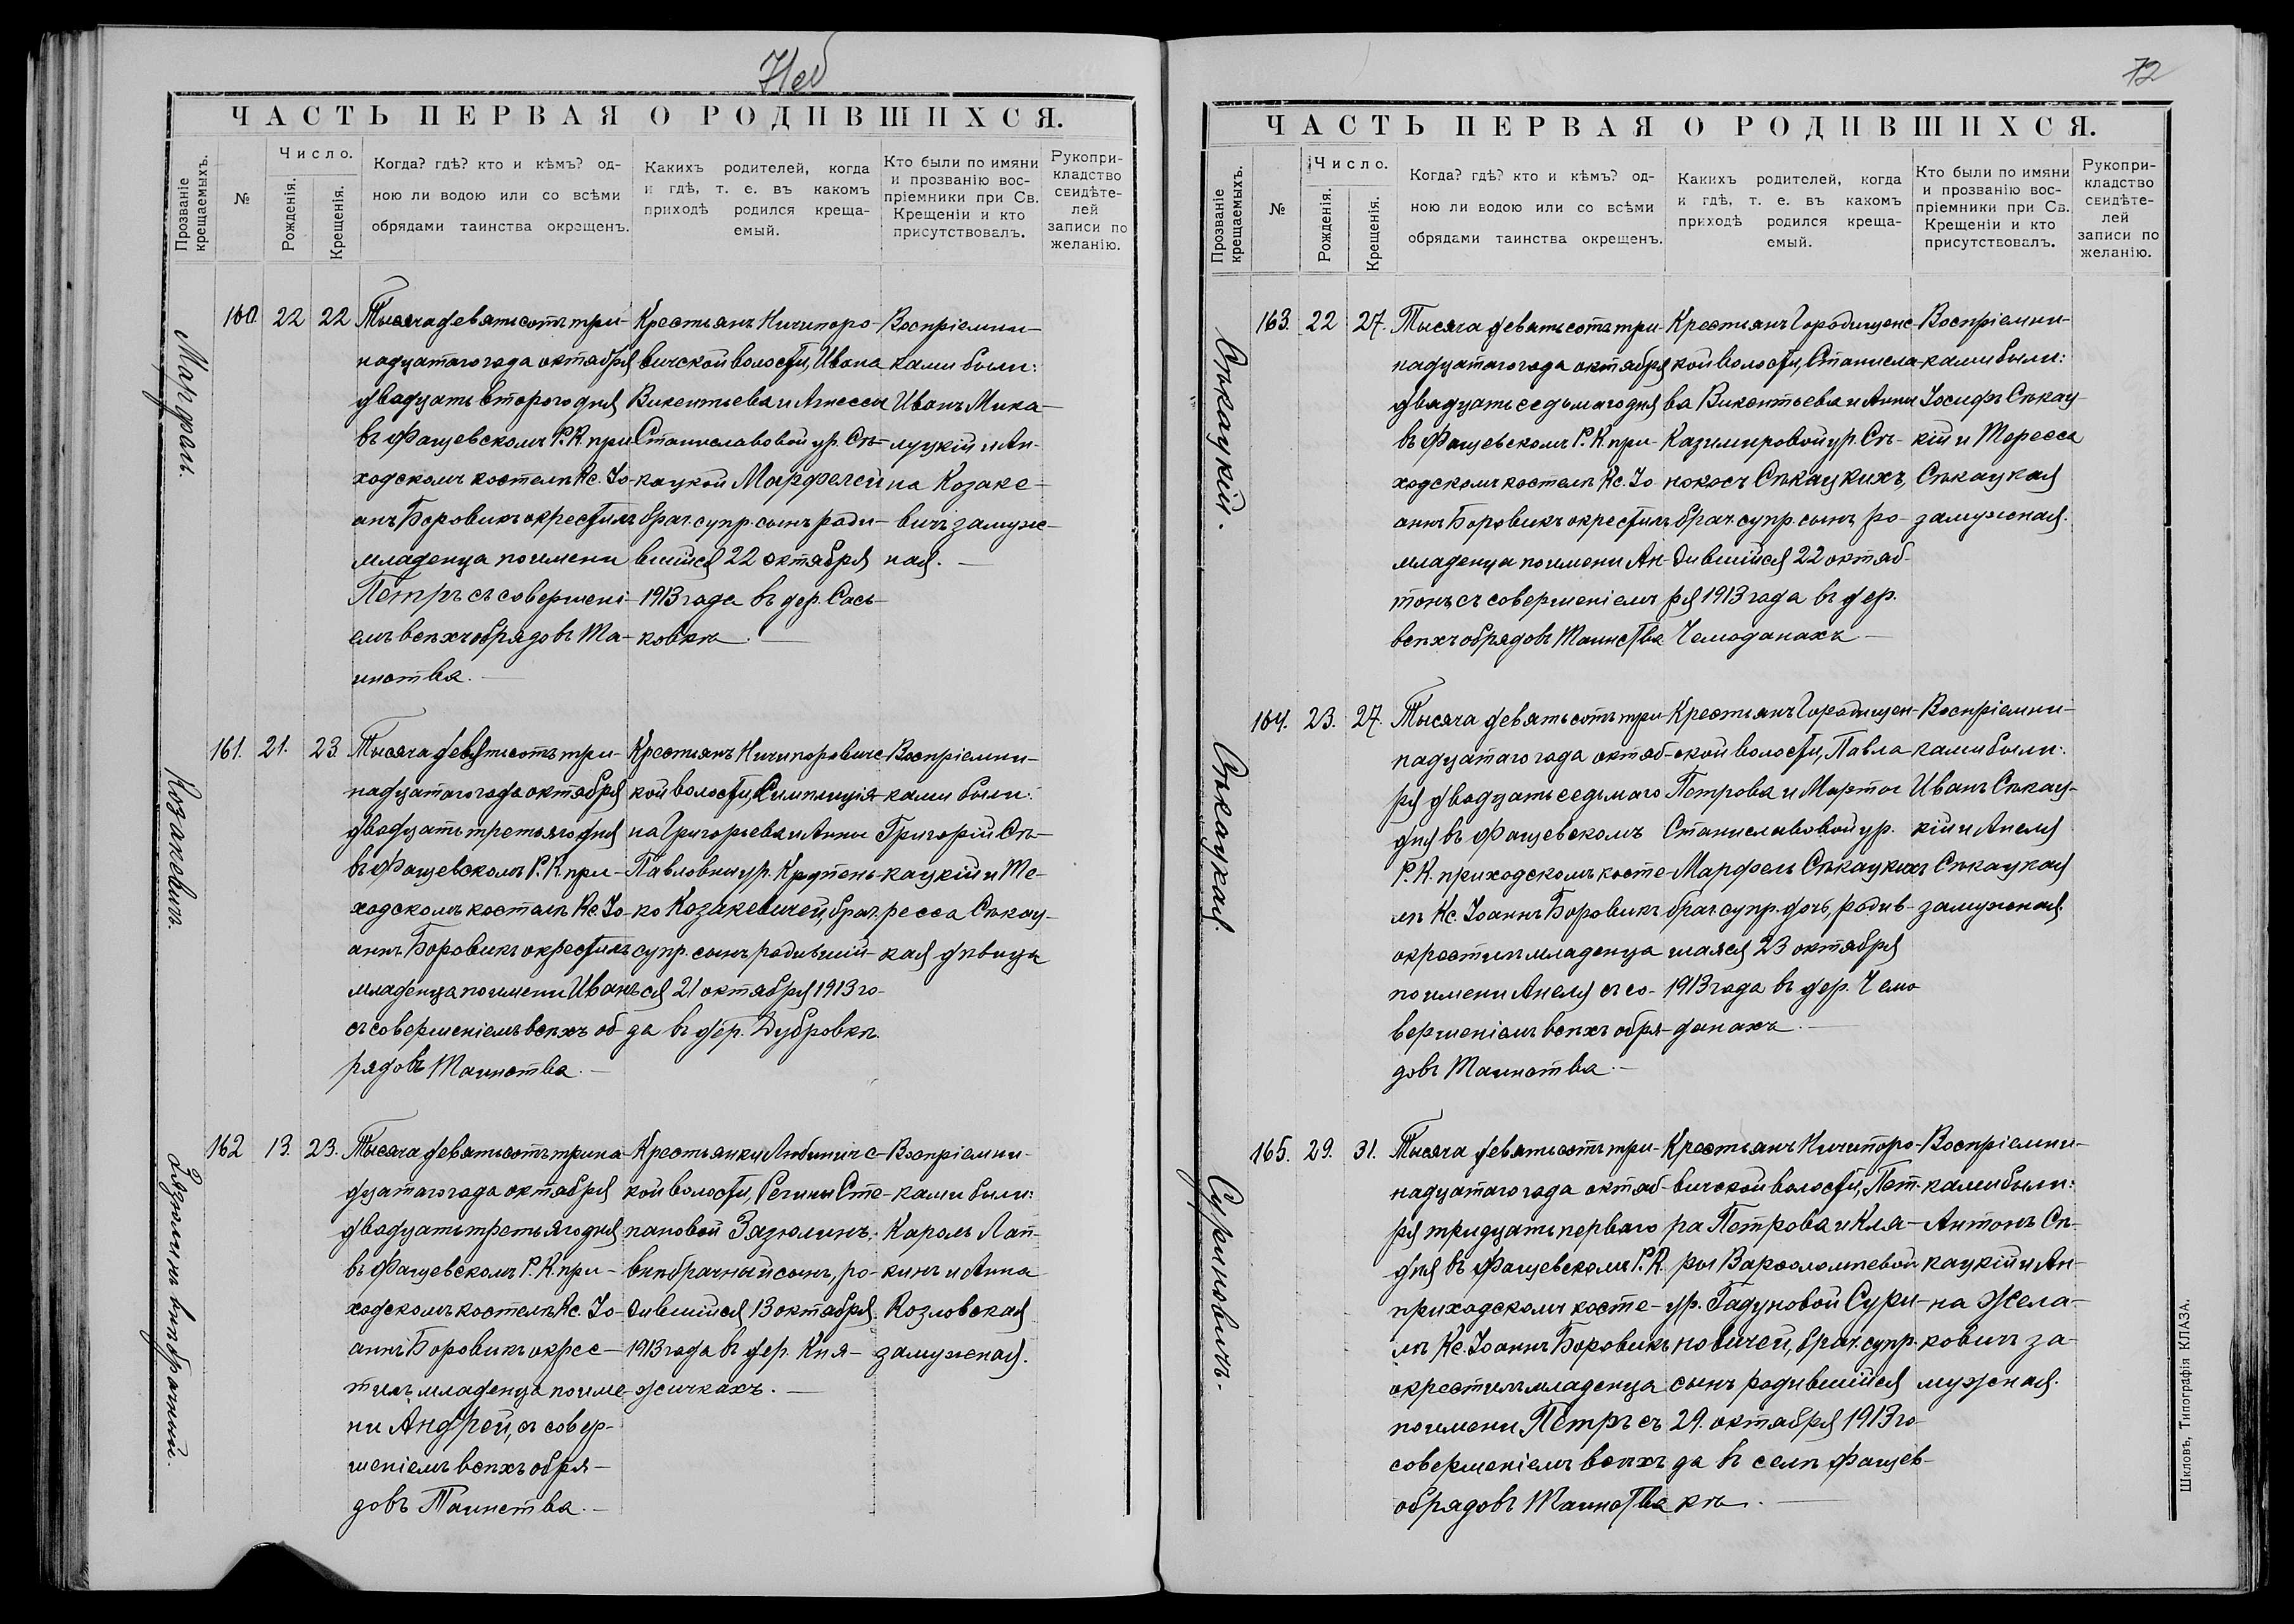 71об
ЧАСТЬ ПЕРВАЯ О РОДИВШИХСЯ.
Прозваніе крещаемыхъ.
№
Число.
Рожденія.
Крещенія.
Когда? гдѣ? кто и кѣмъ? од-
ною ли водою или со всѣми
обрядами таинства окрещенъ.
Какихъ родителей, когда
и гдѣ, т. е. въ какомъ
приходѣ родился креща-
емый.
Кто были по имяни
и прозванію вос-
пріемники при Св.
Крещеніи и кто
присутствовалъ.
Рукопри-
кладство
свидѣте-
лей
записи по
желанію.
Марфель.
160 22 22
Тысяча девятьсотъ три-
надцатаго года октября
двадцать второго дня
въ Фащевскомъ Р. К. при
ходскомъ костелѣ Кс. Іо-
анъ Боровикъ окрестилъ
младенца по имени
Петръ съ совершені-
емъ всѣхъ обрядовъ Та-
инства.
Крестьянъ Ничипоро-
вичской волости, Ивана
Викентьева и Агнессы
Станиславовой ур. Сѣ-
кацкой Марфелей
брач. супр. сынъ роди-
вшійся 22 октября
1913 года въ дер. Сась-
ковкѣ.
Воспріемни-
ками были:
Иванъ Мика-
луцкій и Ан-
на Козаке-
вичъ замуж-
ная.
Козакевичъ.
161. 21. 23
Тысяча девятьсотъ три-
надцатаго года октября
двадцать третьяго дня
въ Фащевскомъ Р. К. при-
ходскомъ костелѣ Кс. Іо-
аннъ Боровикъ окрестилъ
младенца по имени Иванъ
съ совершеніемъ всѣхъ об-
рядовъ Таинства.
Крестьянъ Ничипоровичс-
кой волости,
на Григорьева и Анны
Павловны ур. Крутень-
ко Козакевичей, брач.
супр. сынъ родившій-
ся 21 октября 1913 го-
да въ дер. Дубровкѣ.
Воспріемни-
ками были:
Григорій Сѣ-
кацкій и Те-
ресса Сѣкац-
кая дѣвица
Зазюлинъ внѣбрачный.
162 13. 23.
Тысяча девятьсотъ трина-
дцатаго года октября
двадцать третьяго дня
въ Фащевскомъ Р. К. при-
ходскомъ костелѣ Кс. Іо-
аннъ Боровикъ окрес-
тилъ младенца по име-
ни Андрей, съ совер-
шеніемъ всѣхъ обря-
довъ Таинства.
Крестьянки Любиничс-
кой волости, Регины Сте-
пановой Зазюлинъ,
внѣбрачный сынъ, ро-
дившійся 13 октября
1913 года въ дер. Кня-
жичкахъ.
Воспріемни-
ками были:
Кароль Лап-
кинъ и Анна
Козловская
замужная.
72
ЧАСТЬ ПЕРВАЯ О РОДИВШИХСЯ.
Прозваніе крещаемыхъ.
№
Число.
Рожденія.
Крещенія.
Когда? гдѣ? кто и кѣмъ? од-
ною ли водою или со всѣми
обрядами таинства окрещенъ.
Какихъ родителей, когда
и гдѣ, т. е. въ какомъ
приходѣ родился креща-
емый.
Кто были по имяни
и прозванію вос-
пріемники при Св.
Крещеніи и кто
присутствовалъ.
Рукопри-
кладство
свидѣте-
лей
записи по
желанію.
Сѣкацкій.
163. 22 27.
Тысяча девятьсотъ три-
надцатаго года октября
двадцать седьмаго дня
въ Фащевскомъ Р. К. при-
ходскомъ костелѣ Кс. Іо
аннъ Боровикъ окрестилъ
младенца по имени Ан-
тонъ съ совершеніемъ
всѣхъ обрядовъ Таинства
Крестьянъ Городищенс-
кой волости, Станисла-
ва Викентьева и Анны
Казимировой ур. Сѣ-
Сѣкацкихъ,
брач. супр. сынъ ро-
дившійся 22 октяб-
ря 1913 года въ дер.
Чемоданахъ
Воспріемни-
ками были:
Іосифъ Сѣкац-
кій и Тересса
Сѣкацкая
замужная.
Сѣкацкая.
164. 23. 27.
Тысяча девятьсотъ три-
надцатаго года октяб-
ря двадцать седьмаго
дня въ Фащевскомъ
Р. К. приходскомъ косте-
лѣ Кс. Іоаннъ Боровикъ
окрестилъ младенца
по имени Анеля съ со-
вершеніемъ всѣхъ обря-
довъ Таинства.
Крестьянъ Городищен-
ской волости, Павла
Петрова и Марты
Станиславовой ур.
Марфель Сѣкацкихъ
брач. супр. дочь, родив-
шаяся 23 октября
1913 года въ дер. Чемо
данахъ.
Воспріемни-
ками были:
Иванъ Сѣкац-
кій и Анеля
Сѣкацкая
замужная.
Суриновичъ.
165. 29. 31.
Тысяча девятьсотъ три-
надцатаго года октяб-
ря тридцать перваго
дня въ Фащевскомъ Р. К.
приходскомъ косте-
лѣ Кс. Іоаннъ Боровикъ
окрестилъ младенца
по имени Петръ съ
совершеніемъ всѣхъ
обрядовъ Таинства
Крестьянъ Ничипоро-
вичской волости, Пет-
ра Петрова и Кля-
ры Варѳоломѣевой
ур. Гадуновой Сури-
новичей, брач. супр.
сынъ родившійся
29. октября 1913 го-
да въ селѣ Фащев-
кѣ.
Воспріемни-
ками были:
Антонъ Сѣ-
кацкій и Ан-
на Жела-
ковичъ за-
мужная.
Шкловъ, Типографія КЛАЗА.